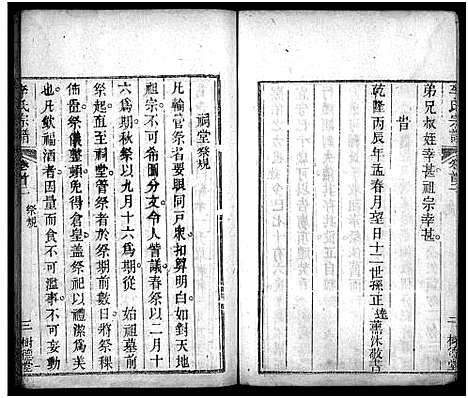 弟兄叔姪幸甚祖宗幸甚
旹
乾隆丙辰年孟春月望日十二世孫正達薰沐敬書
李氏宗譜
卷首二
二
樹德堂
祠堂祭規
凡輪管祭者要與同戸衆扣算明白如對天地
祖宗不可希圖分文令人訾議春祭以二月十
六爲期秋祭以九月十六爲期從 始祖墓前
祭起直至祠堂管祭者於祭期前數日將祭稞
佈置祭儀整頓免得倉皇盖祭祀以禮潔爲美
也凡飲福酒者因量而食不可濫事不可妄動
李氏宗譜
卷首二
祭規
三
樹德堂